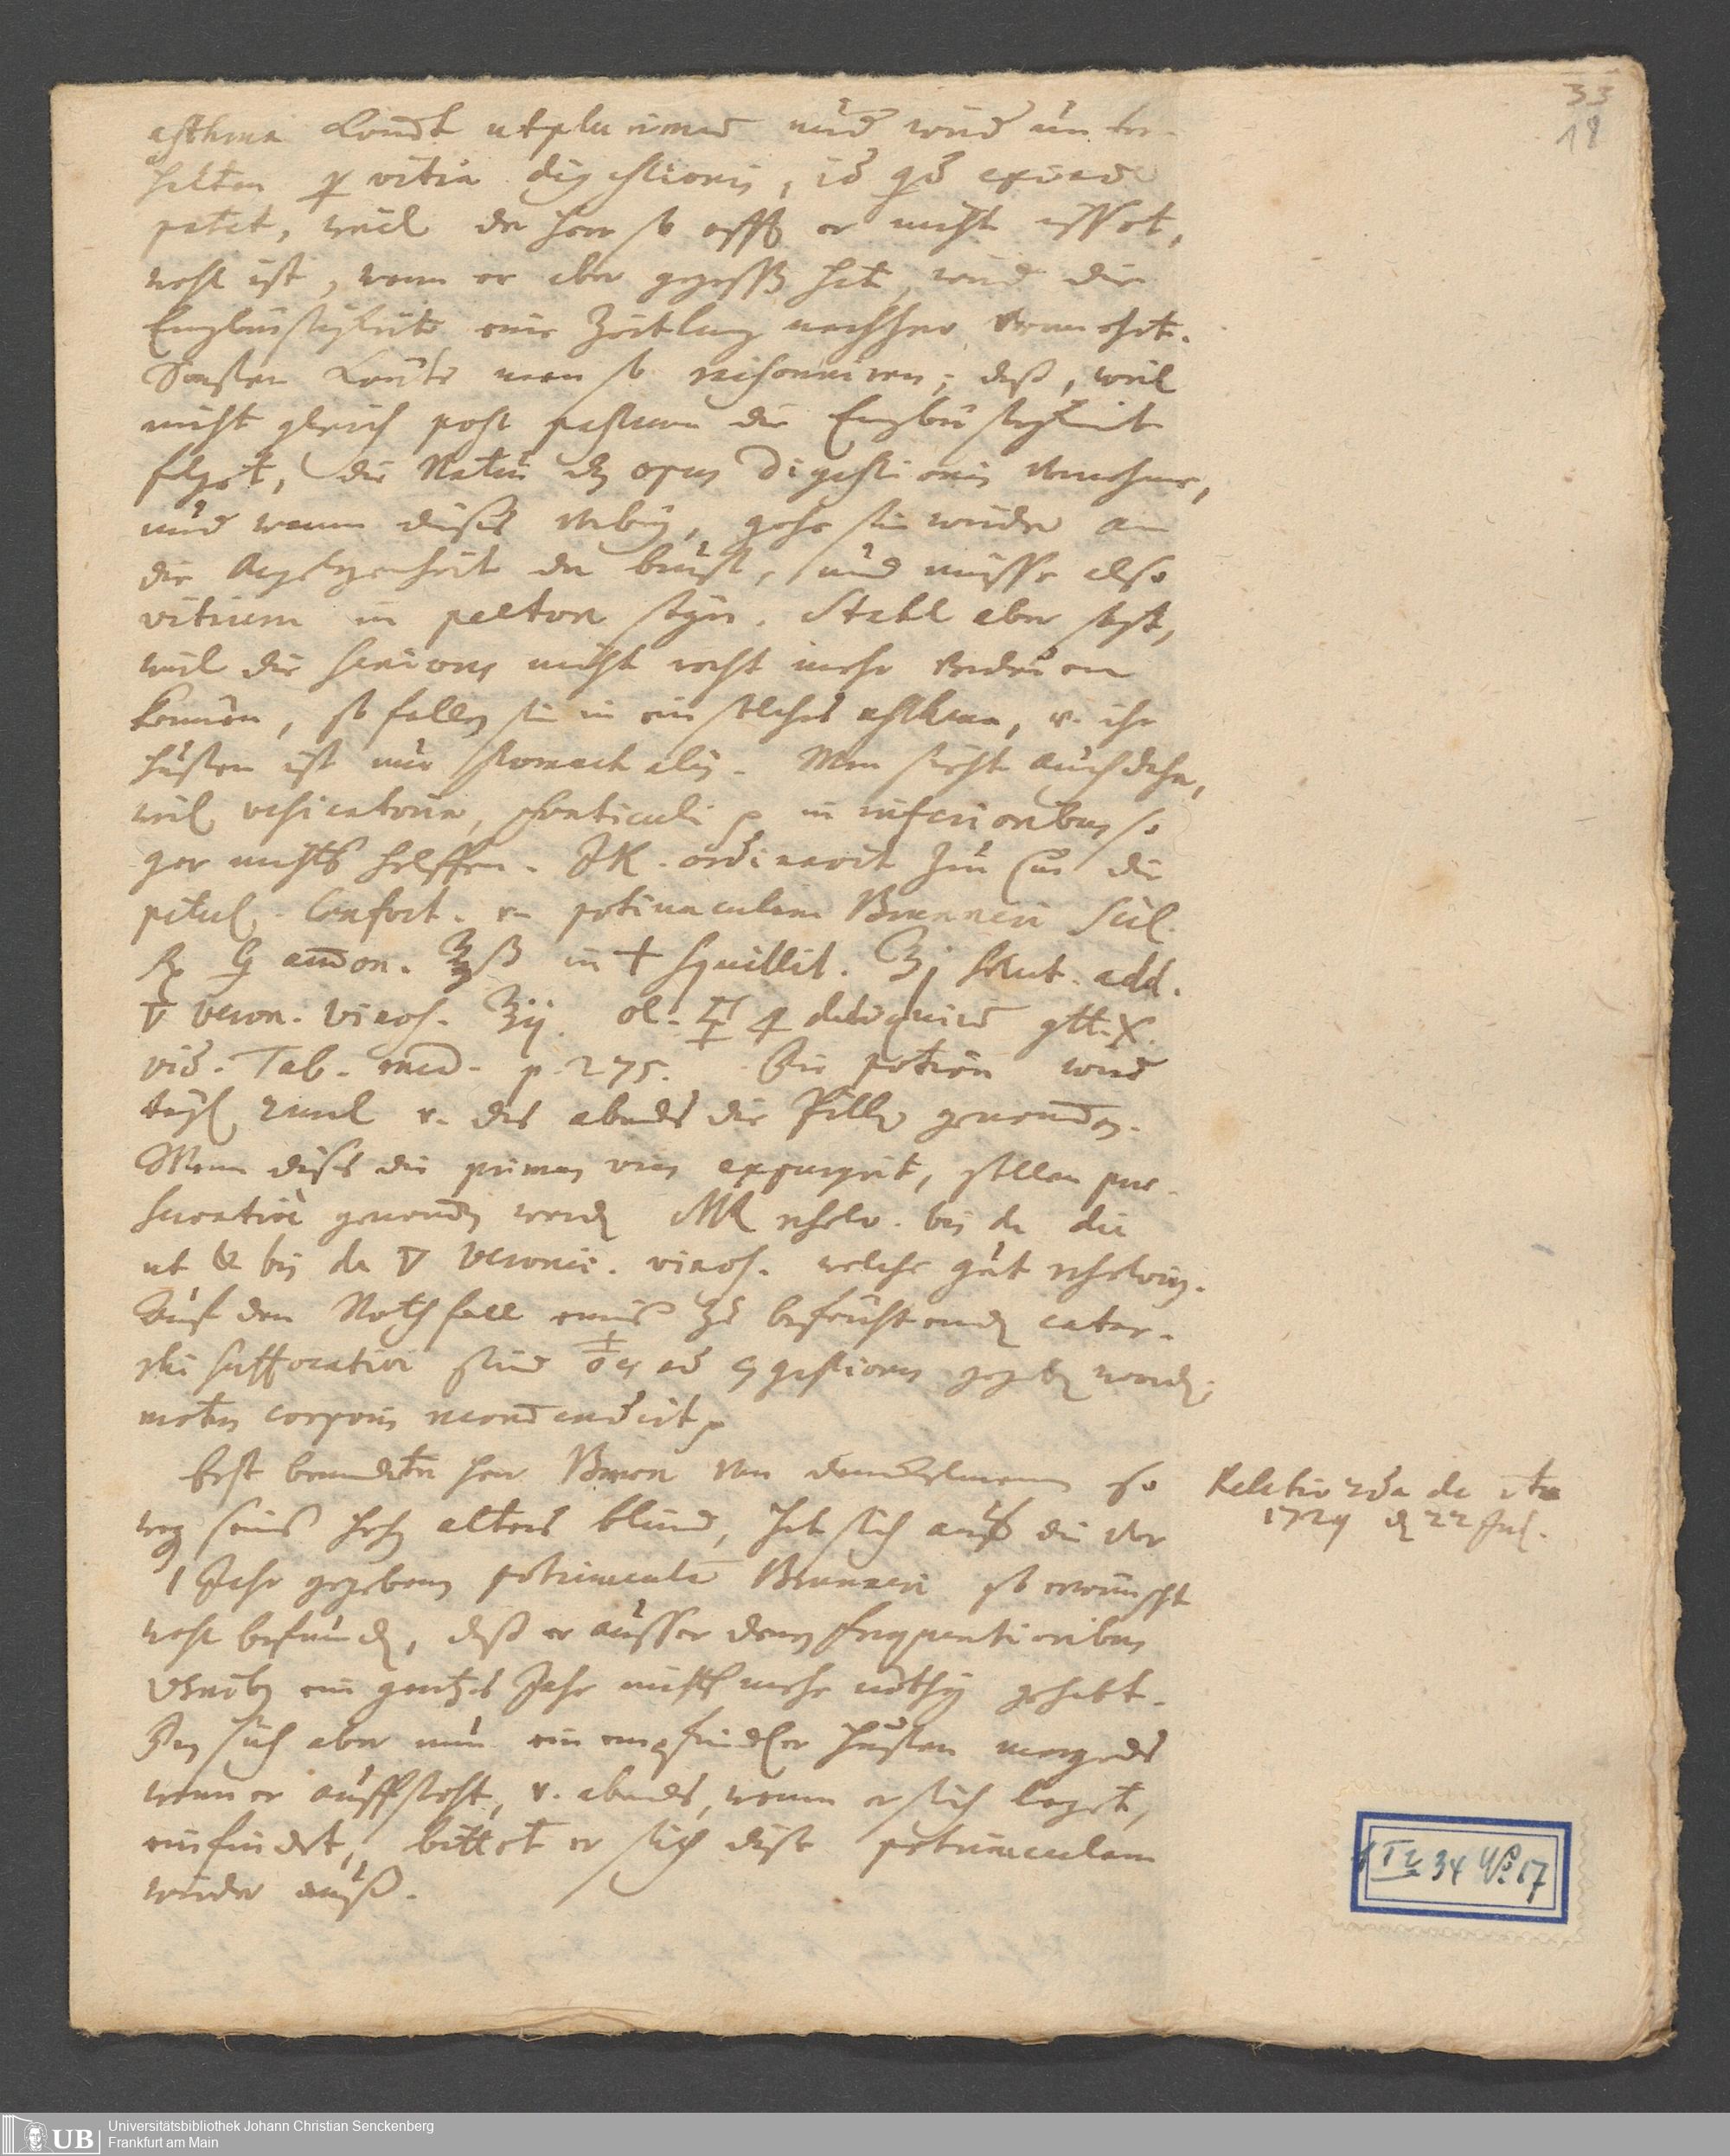 33
18
asthma komt utplurimum und wird unter-
halten per vitia digestionis, id quod exinde
patet, weil der Herr so offt er nicht isset,
wohl ist, wenn er aber gegessen hat, wird die
Engbrüstigkeit eine Zeitlang nachher vermehrt.
Sonsten könte man so raisonniren; daß, weil
nicht gleich post pastum die Engbrüstigkeit
folget, die Natur das opus digestionis vornehme,
und wann dieses vorbey, gehe sie wieder an
die Angelegenheit der brust, und müsse also
vitium in pectore seyn. Stahl aber sagt,
weil die seniores nicht recht mehr verdauen
können, so fallen sie in ein solches asthma, v. ihr
Husten ist nur stomachalis. Man sieht auch daher,
weil vesicatoria, fonticuli p in inferioribus so
gar nichts helffen. ordinavit zur Cur die
pilul. confort. v. potiunculam Brunneri scil.
in + squillit. ʒj solut. add.
▽ veron. vinos. ʒij. ol. deliquium gtt. X.
vid. Tab. med. p. 275. Die potion wird
tägl. 2mal v. des abends die Pillen genommen.
Wenn dieses die primas vias expurgirt, sollen prae-
servativè genommen werden bis da die
ut & bis da ▽ Veronic. vinos. welche gut
Auf den Nothfall eines zu befürchtenden catar-
rhi suffocativi sind gegeben worden;
motus corporis recommendirt p
Erst bemeldter Herr Baron von so
weg seines hohen alters blind, hat sich auf die vor
1 Jahr gegebene potiunculam Brunneri so erwünscht
wohl befunden, daß er ausser denen frequentioribus
ein gantzes Jahr nichts mehr nöthig gehabt.
Da sich aber nun ein empfindlicher Husten morgends
wenn er auffsteht, v. abends, wenn er sich leget,
einfindet, bittet er sich diese potiunculam
wieder auß.
Relatio 2da de
1729 d 22 Jul.
34 No. 17
UB
Universitätsbibliothek Johann Christian Senckenberg
Frankfurt am Main